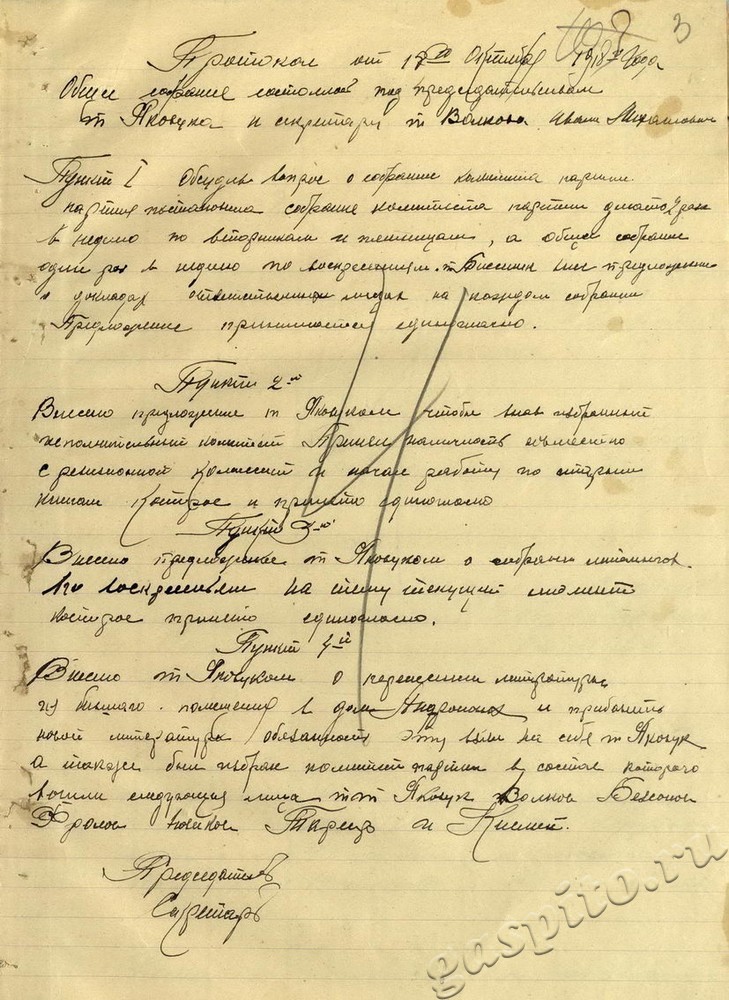 3
Протокол от 17го Октября 1918го года
Общее собрание состоялось под председательством
т Яковука и секретаря т Волкова Ивана Михайловича
Пункт I Обсудив вопрос о собрание комитета партии.
партия постановила собрание комитета партии делать 2 раза
в неделю по вторникам и пятницам, а общее собрание
один раз в неделю по воскресеньям. т внес предложение
о докладах ответственных лицах на каждом собрании
Предложение принимается единогласно.
Пункт 2ой
Внесено предложение т Яковуком чтобы вновь избранный
исполнительный комитет принял наличность совместно
с ревизионной комиссией и начал работу по старым
книгам которое и принято единогласно
Пункт 3ий
Внесено предложение т Яковуком о собрании митингов
по воскресеньям на тему текущий момент
которое принято единогласно.
Пункт 4ый
Внесено т Яковуком о перенесении литературы
из бывшего помещения в дом и прибавить
новой литературы обязанность эту взял на себя т Яковук
а также был избран комитет партии в состав которого
вошли следующая лица т т Яковук Волков
Фролов и
Председатель
Секретарь
gaspito.ru